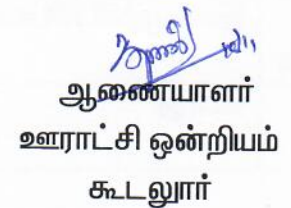 ஆணையாளர்
ஊராட்சி ஒன்றியம்
கூடலூர்